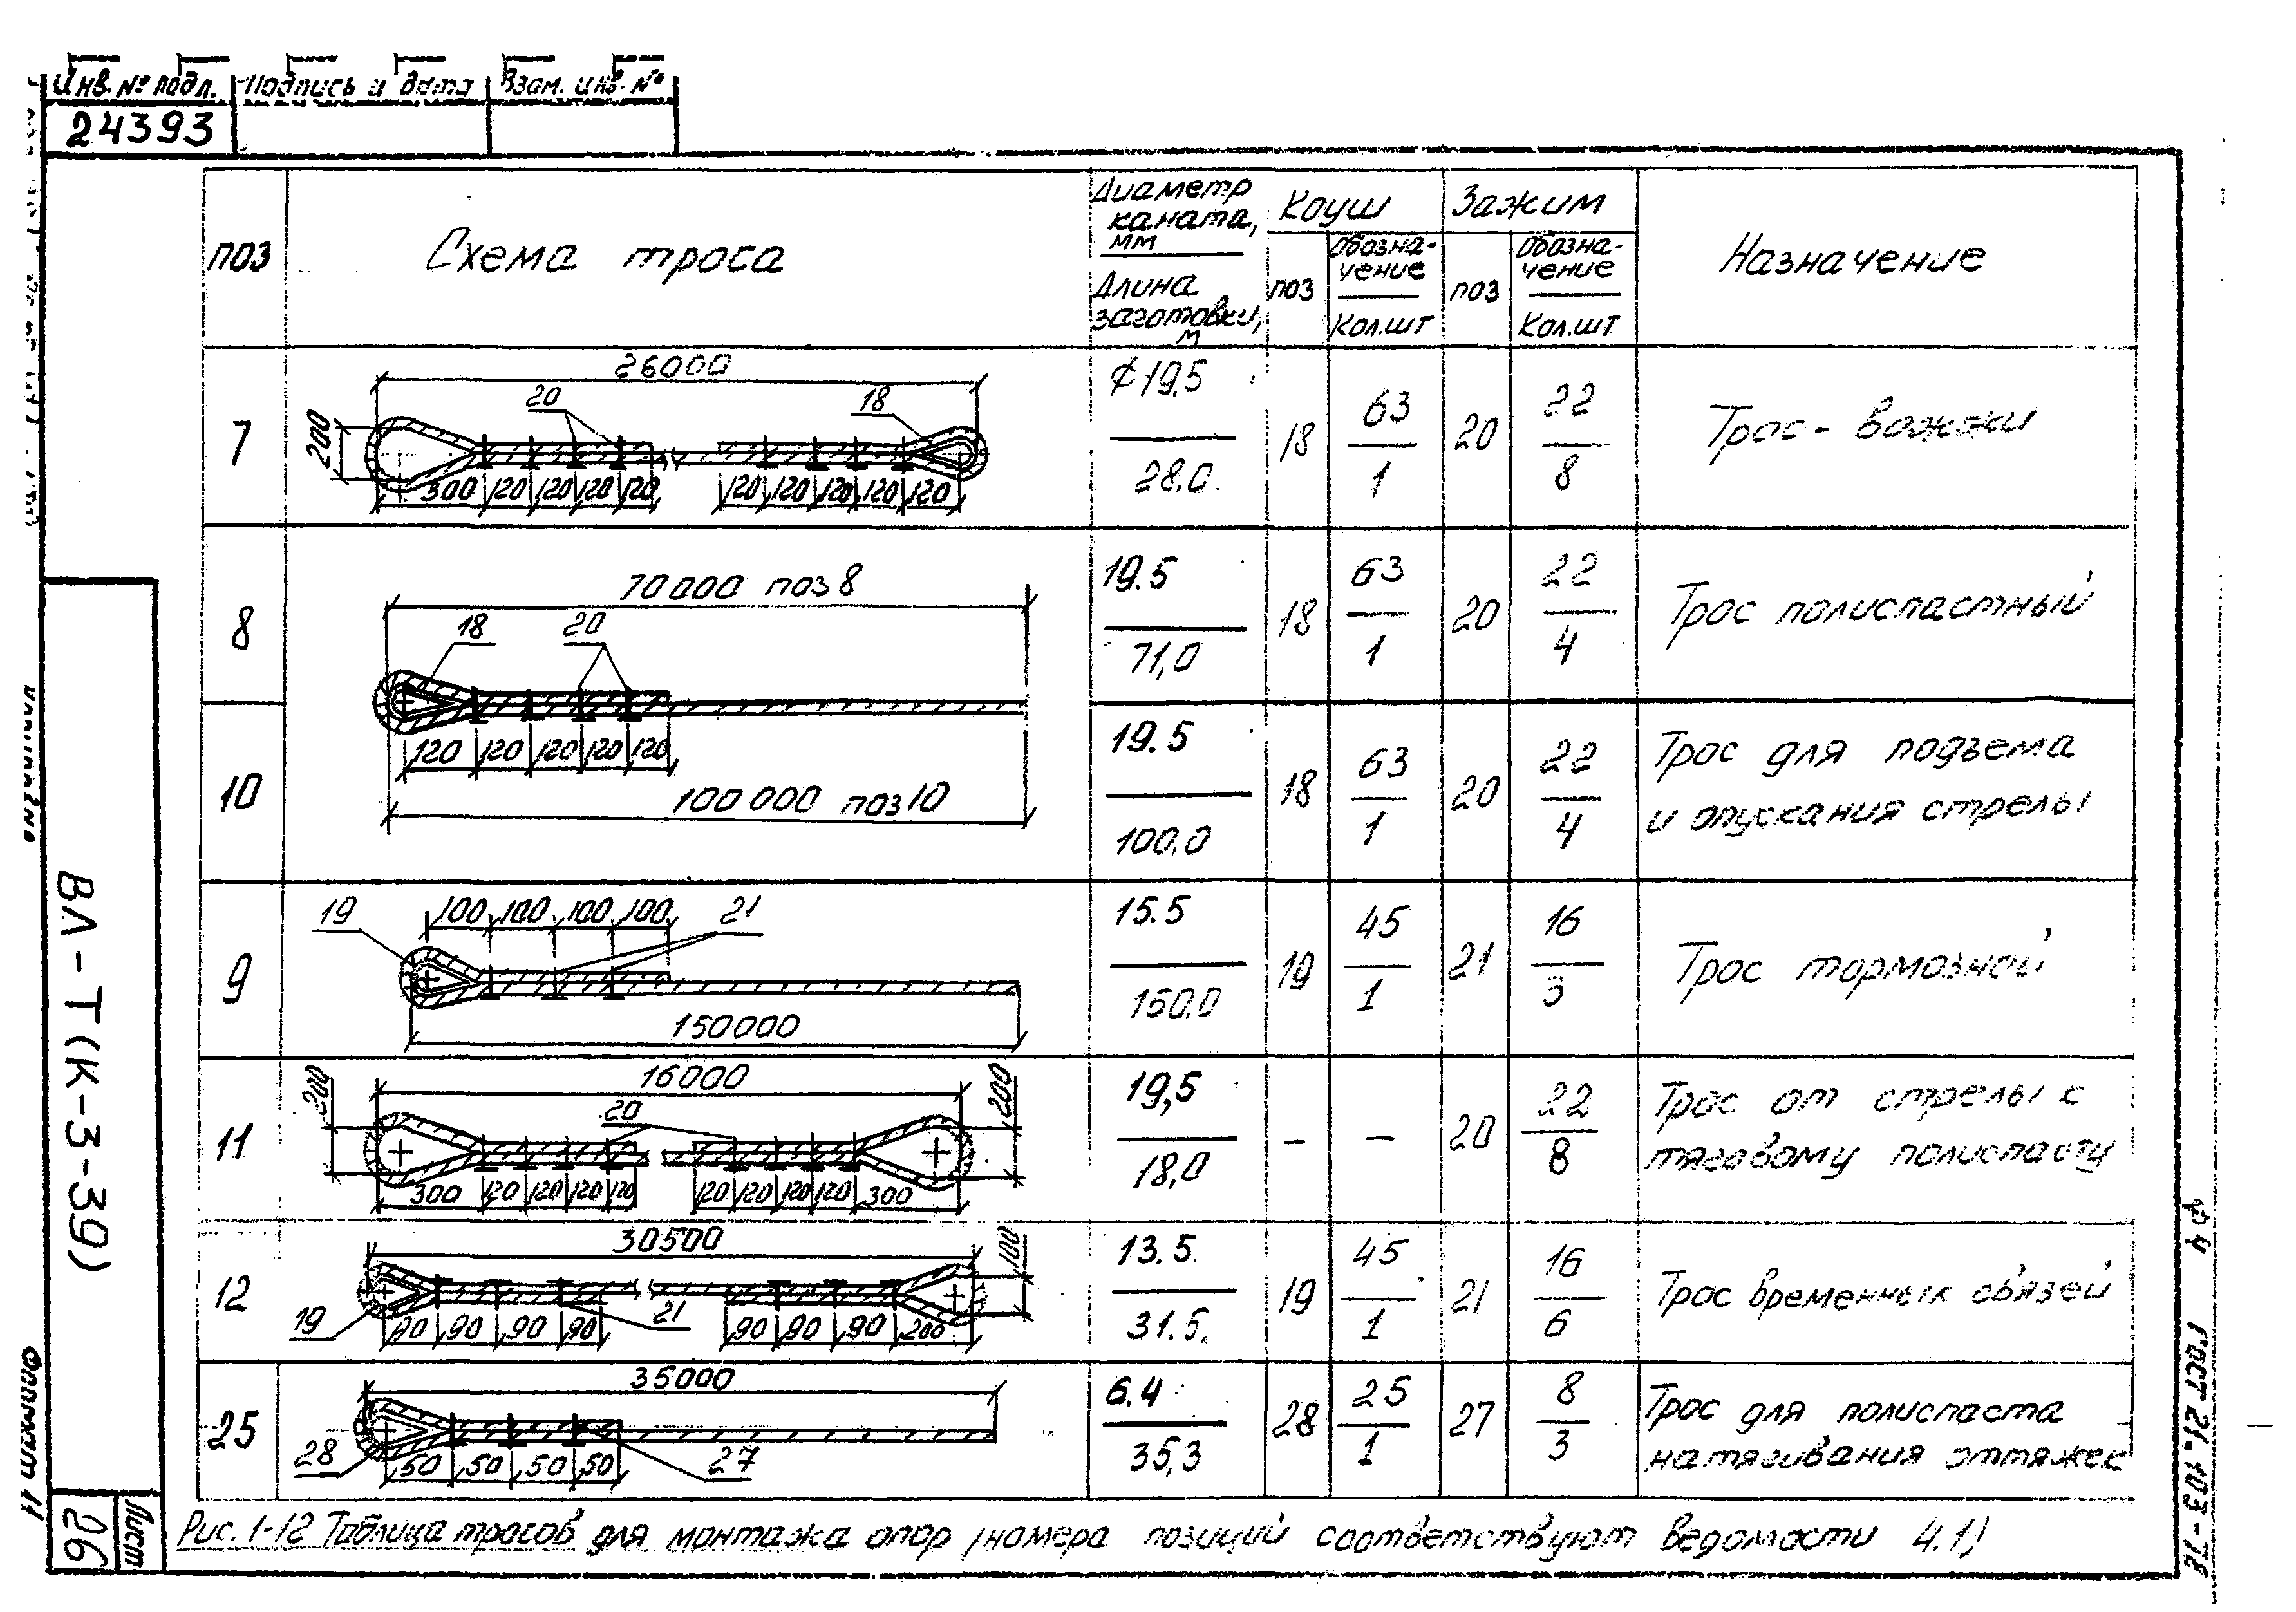 Инв. № подл. Подпись и дата Взам. инв. №
24393
поз Схема троса Диаметр каната, мм Коуш Зажим Назначение
Длина заготовки, м поз Обозначение Кол.шт поз Обозначение Кол.шт
7
26000
20 18
200
300 120 120 120 120 120 120 120 120 120
¢19.5
28.0
18
63
1
20
22
8
Трос-вожжи
8
70000 поз 8
18 20
19.5
71,0
18
63
1
20
22
4
Трос полиспастный
10
120 120 120 120 120
100 000 поз 10
19.5
100,0
18
63
1
20
22
4
Трос для подъема
и опускания стрелы
9
19 100 100 100 100 21
150000
15.5
150.0
19
45
1
21
16
3
Трос тормозной
11
200 16000 200
20
300 120 120 120 120 120 120 120 120 300
19,5
18,0
–
–
20
22
8
Трос от стрелы к
тяговому полиспасту
12
30500 100
19 90 90 90 90 21 90 90 90 200
13.5
31.5.
19
45
1
21
16
6
Трос временных связей
25
35000
28 50 50 50 50 27
6.4
35,3
28
25
1
27
8
3
Трос для полиспаста
натягивания оттяжек
Рис. 1-12 Таблица тросов для монтажа опор (номера позиций соответствуют ведомости 4.1)
ВЛ-Т(К-3-39)
Лист
26
Формат 11
ф 4 ГОСТ 21.103-78